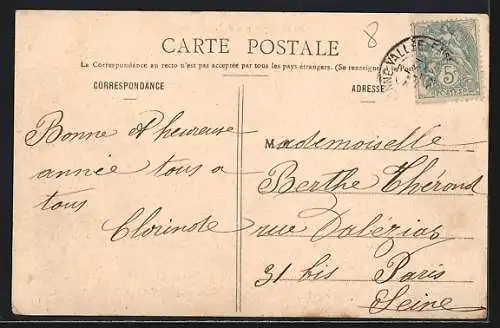 8
CARTE POSTALE
La Correspondance au recto n'est pas acceptée par tous les pays étrangers. (Se renseigner à la Poste)
CORRESPONDANCE
ADRESSE
5
Bonne et heureuse
année tous a
tous
Clorinde
Mademoiselle
Berthe Thérond
rue Dalézias
31 bis Paris
Seine